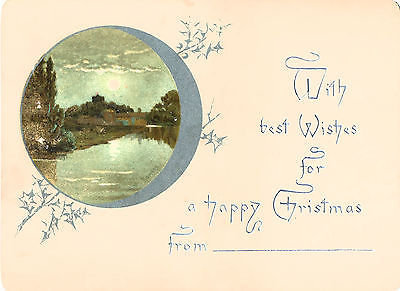 With
best Wishes
for
a happy Christmas
from